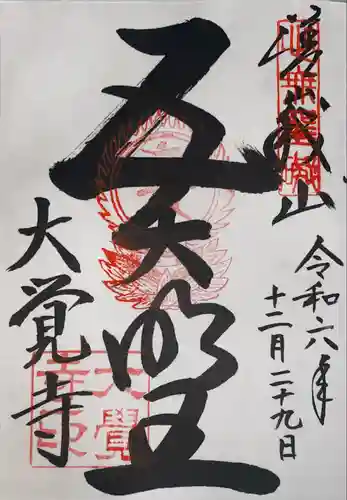 嵯峨山
令和六年
十二月二十九日
五大明王
大覚寺
大覺
寺印